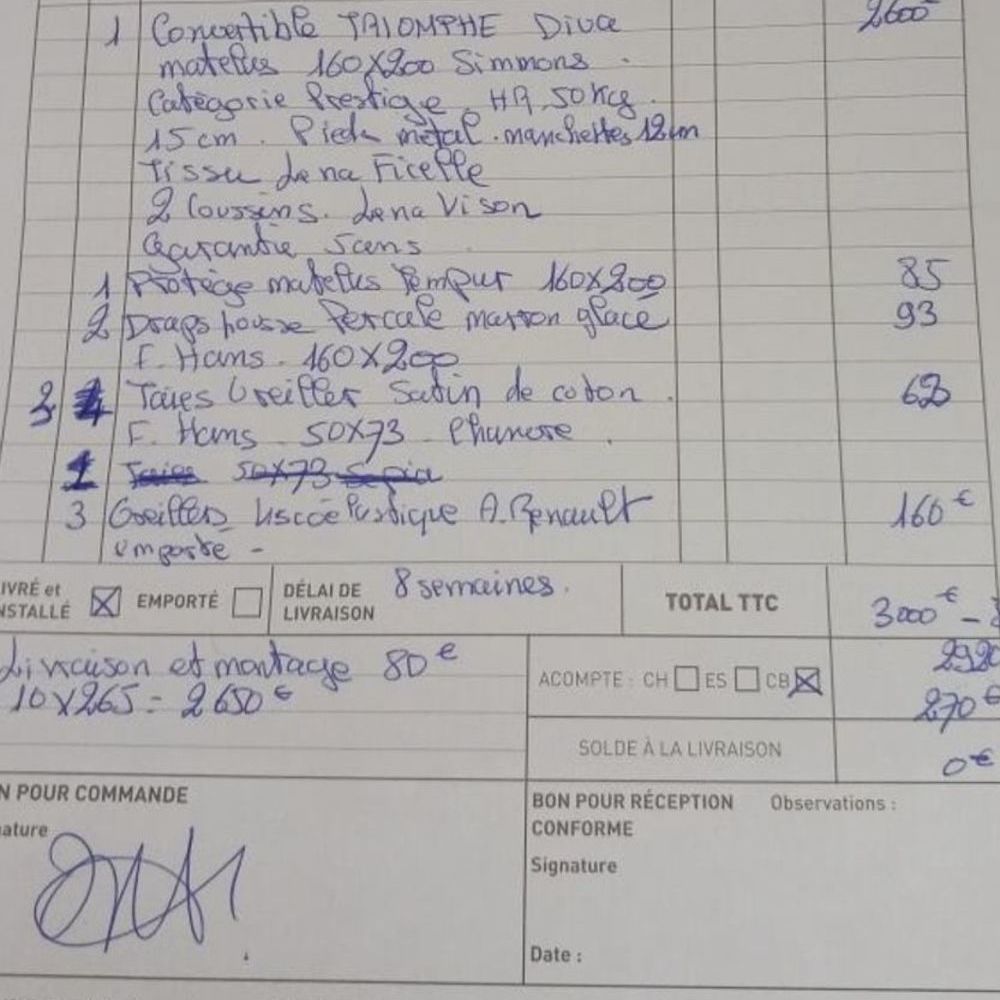 1 Convertible TRIOMPHE Diva 2600
matelas 160X200 Simmons.
Catégorie Prestige. HR 50Kg.
15cm. Pieds métal. manchettes 12cm
Tissu Lena Ficelle
2 Coussins. Lena Vison
Garantie 5ans.
1 Protège matelas Tempur 160X200 85
2 Draps housse Percale marron glacé 93
F. Hans. 160X200
3 Taies Oreiller Satin de coton. 62
F. Hans 50X73
1 Taies 50X73 Sepia
3 Oreillers Viscoélastique A. Renault 160€
emporte -
IVRÉ et
NSTALLÉ EMPORTÉ DÉLAI DE
LIVRAISON 8 semaines. TOTAL TTC 3000€ -
Livraison et montage 80€
10X265 = 2650€
ACOMPTE : CH ES CB 270€
SOLDE À LA LIVRAISON 0€
N POUR COMMANDE
nature
BON POUR RÉCEPTION Observations :
CONFORME
Signature
Date :